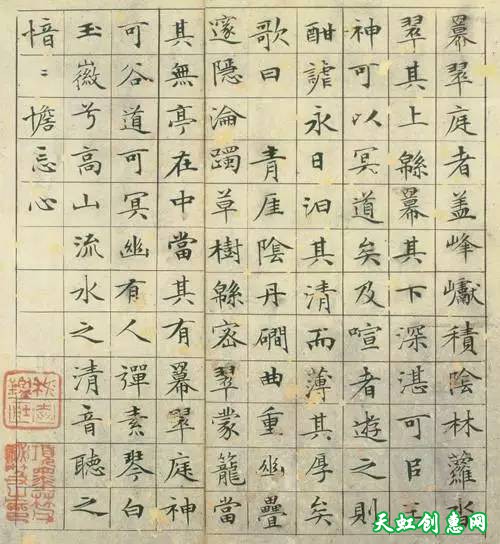 羃翠庭者盖峰巘積陰林蘿沓
翠其上緜羃其下深湛可㠯王
神可以冥道矣及喧者遊之則
酣謔永日汩其清而薄其厚矣
歌曰 青厓陰丹磵曲重幽疊
邃隱淪躅草樹緜密翠蒙籠當
其無亭在中當其有羃翠庭神
可谷道可冥幽有人彈素琴白
玉徽兮高山流水之清音聽之
愔〻憺忘心
天虹创惠网